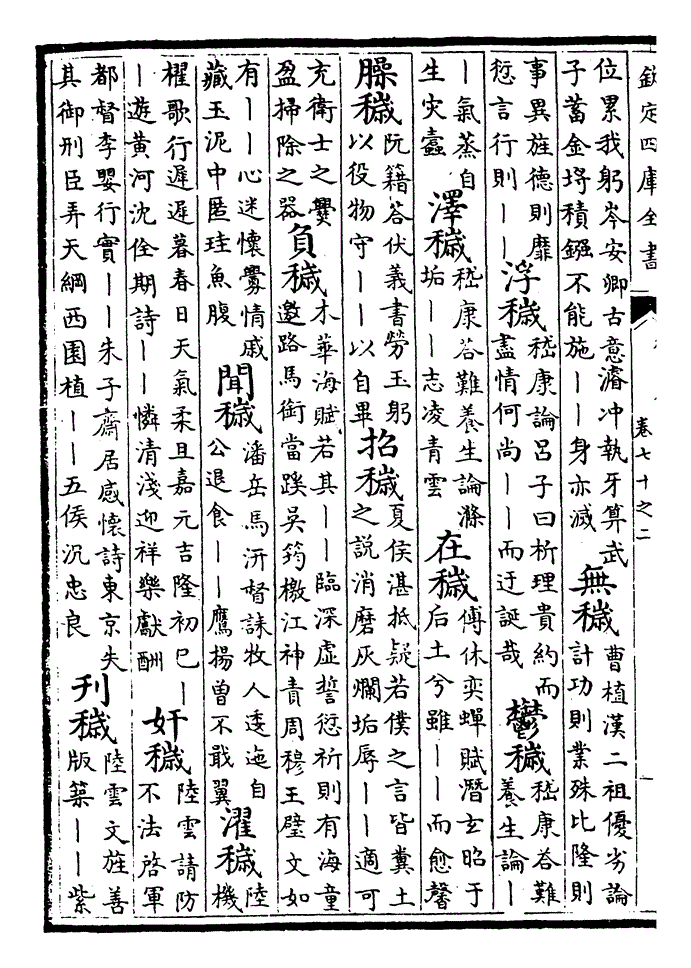 欽定四庫全書
卷七十之二
位累我躬岑安卿古意濬冲執牙算武
子蓄金埓積鏹不能施丨丨身亦滅
無穢
曹植漢二祖優劣論
計功則業殊比隆則
事異旌德則靡
愆言行則丨丨
浮穢
嵇康論呂子曰析理貴約而
盡情何尚丨丨而迂誕哉
鬱穢
嵇康荅難
養生論丨
丨氣蒸自
生灾蠹
澤穢
嵇康荅難養生論滌
垢丨丨志凌青雲
在穢
傅休奕蟬賦潛玄昭于
后土兮雖丨丨而愈馨
臊穢
阮籍荅伏義書勞玉躬
以役物守丨丨以自畢
招穢
夏侯湛抵疑若僕之言皆糞土
之說消磨灰爛垢辱丨丨適可
充衛士之爨
盈掃除之器
負穢
木華海賦若其丨丨臨深虛誓愆祈則有海童
邀路馬銜當蹊吳筠檄江神責周穆王璧文如
有丨丨心迷懷釁情戚
藏玉泥中匿珪魚腹
聞穢
潘岳馬汧督誄牧人逶迤自
公退食丨丨鷹揚曾不戢翼
濯穢
陸
機
櫂歌行遲遲暮春日天氣柔且嘉元吉隆初巳丨
丨遊黃河沈佺期詩丨丨憐清淺迎祥樂獻酬
奸穢
陸雲請防
不法啓軍
都督李嬰行實丨丨朱子齋居感懷詩東京失
其御刑臣弄天綱西園植丨丨五侯沉忠良
刋穢
陸雲文旌善
版築丨丨紫